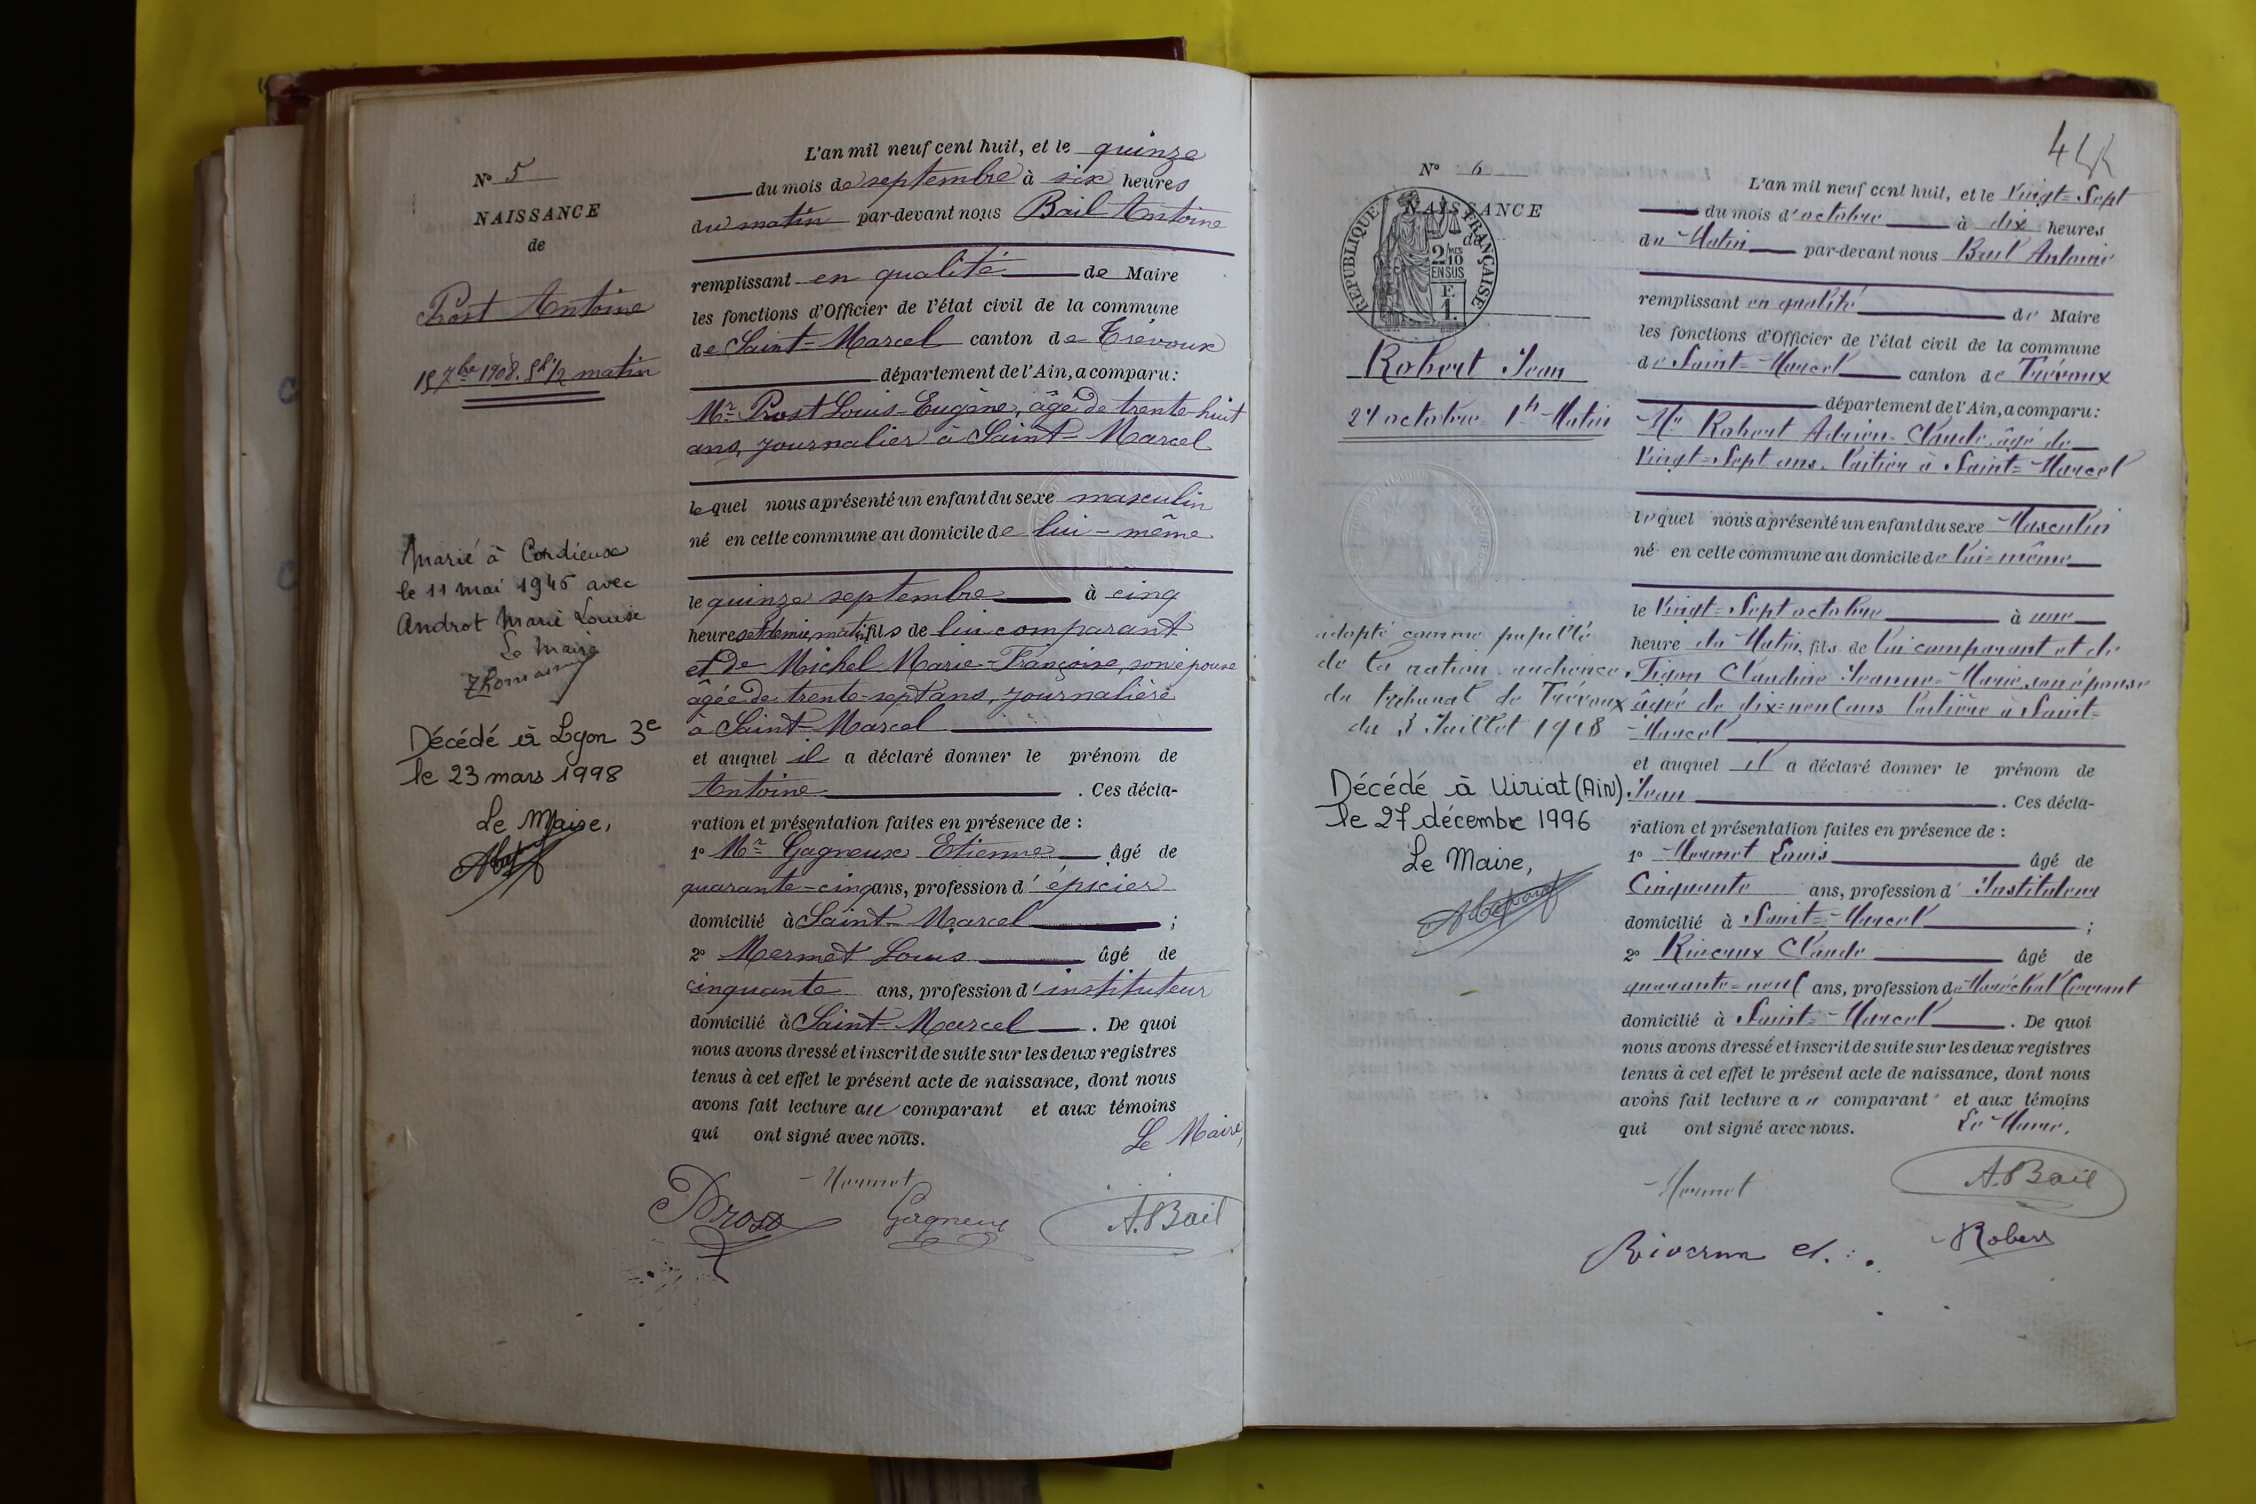 N° 5
NAISSANCE
de
Prost Antoine
15 7bre 1908. 5h 1/2 matin
Marié à Cordieux
le 11 mai 1946 avec
Androt Marie Louise
Le Maire
Décédé à Lyon 3e
le 23 mars 1998
Le Maire,
L'an mil neuf cent huit, et le quinze
du mois de septembre à six heures
du matin par-devant nous Bail Antoine
remplissant en qualité de Maire
les fonctions d'Officier de l'état civil de la commune
de Saint-Marcel canton de Trévoux
département de l'Ain, a comparu:
Mr Prost Louis-Eugène, âgé de trente-huit
ans, journalier à Saint-Marcel
lequel nous a présenté un enfant du sexe masculin
né en cette commune au domicile de lui-même
le quinze septembre à cinq
heures et demie, matin, fils de lui comparant
et de Michel Marie-Françoise, son épouse
âgée de trente-sept ans, journalière
à Saint-Marcel
et auquel il a déclaré donner le prénom de
Antoine. Ces décla-
ration et présentation faites en présence de:
1° Mr Gagneux Etienne âgé de
quarante-cinq ans, profession d'épicier
domicilié à Saint-Marcel;
2° Mermet Louis âgé de
cinquante ans, profession d'instituteur
domicilié à Saint-Marcel. De quoi
nous avons dressé et inscrit de suite sur les deux registres
tenus à cet effet le présent acte de naissance, dont nous
avons fait lecture au comparant et aux témoins
qui ont signé avec nous.
Le Maire,
Mermet
Prost Gagneux A. Bail
N° 6
NAISSANCE
de
REPUBLIQUE FRANÇAISE
2/10
EN SUS
F.
1.
Robert Jean
27 octobre 1h Matin
adopté comme pupille
de la nation audience
du tribunal de Trévoux
du 3 Juillet 1918
Décédé à Viriat (Ain)
le 27 décembre 1996
Le Maire,
L'an mil neuf cent huit, et le Vingt-Sept
du mois d'octobre à dix heures
du Matin par-devant nous Bail Antoine
remplissant en qualité de Maire
les fonctions d'Officier de l'état civil de la commune
de Saint-Marcel canton de Trévoux
département de l'Ain, a comparu:
Mr Robert Adrien-Claude, âgé de
Vingt-Sept ans, laitier à Saint-Marcel
lequel nous a présenté un enfant du sexe Masculin
né en cette commune au domicile de lui-même
le Vingt-Sept octobre à une
heure du Matin, fils de lui comparant et de
Claudine Jeanne-Marie, son épouse
âgée de dix-neuf ans laitière à Saint-
Marcel
et auquel il a déclaré donner le prénom de
Jean. Ces décla-
ration et présentation faites en présence de:
1° Mermet Louis âgé de
Cinquante ans, profession d'Instituteur
domicilié à Saint-Marcel;
2° Rivaux Claude âgé de
quarante-neuf ans, profession de Maréchal ferrant
domicilié à Saint-Marcel. De quoi
nous avons dressé et inscrit de suite sur les deux registres
tenus à cet effet le présent acte de naissance, dont nous
avons fait lecture au comparant et aux témoins
qui ont signé avec nous.
Le Maire.
Mermet A. Bail
Robert